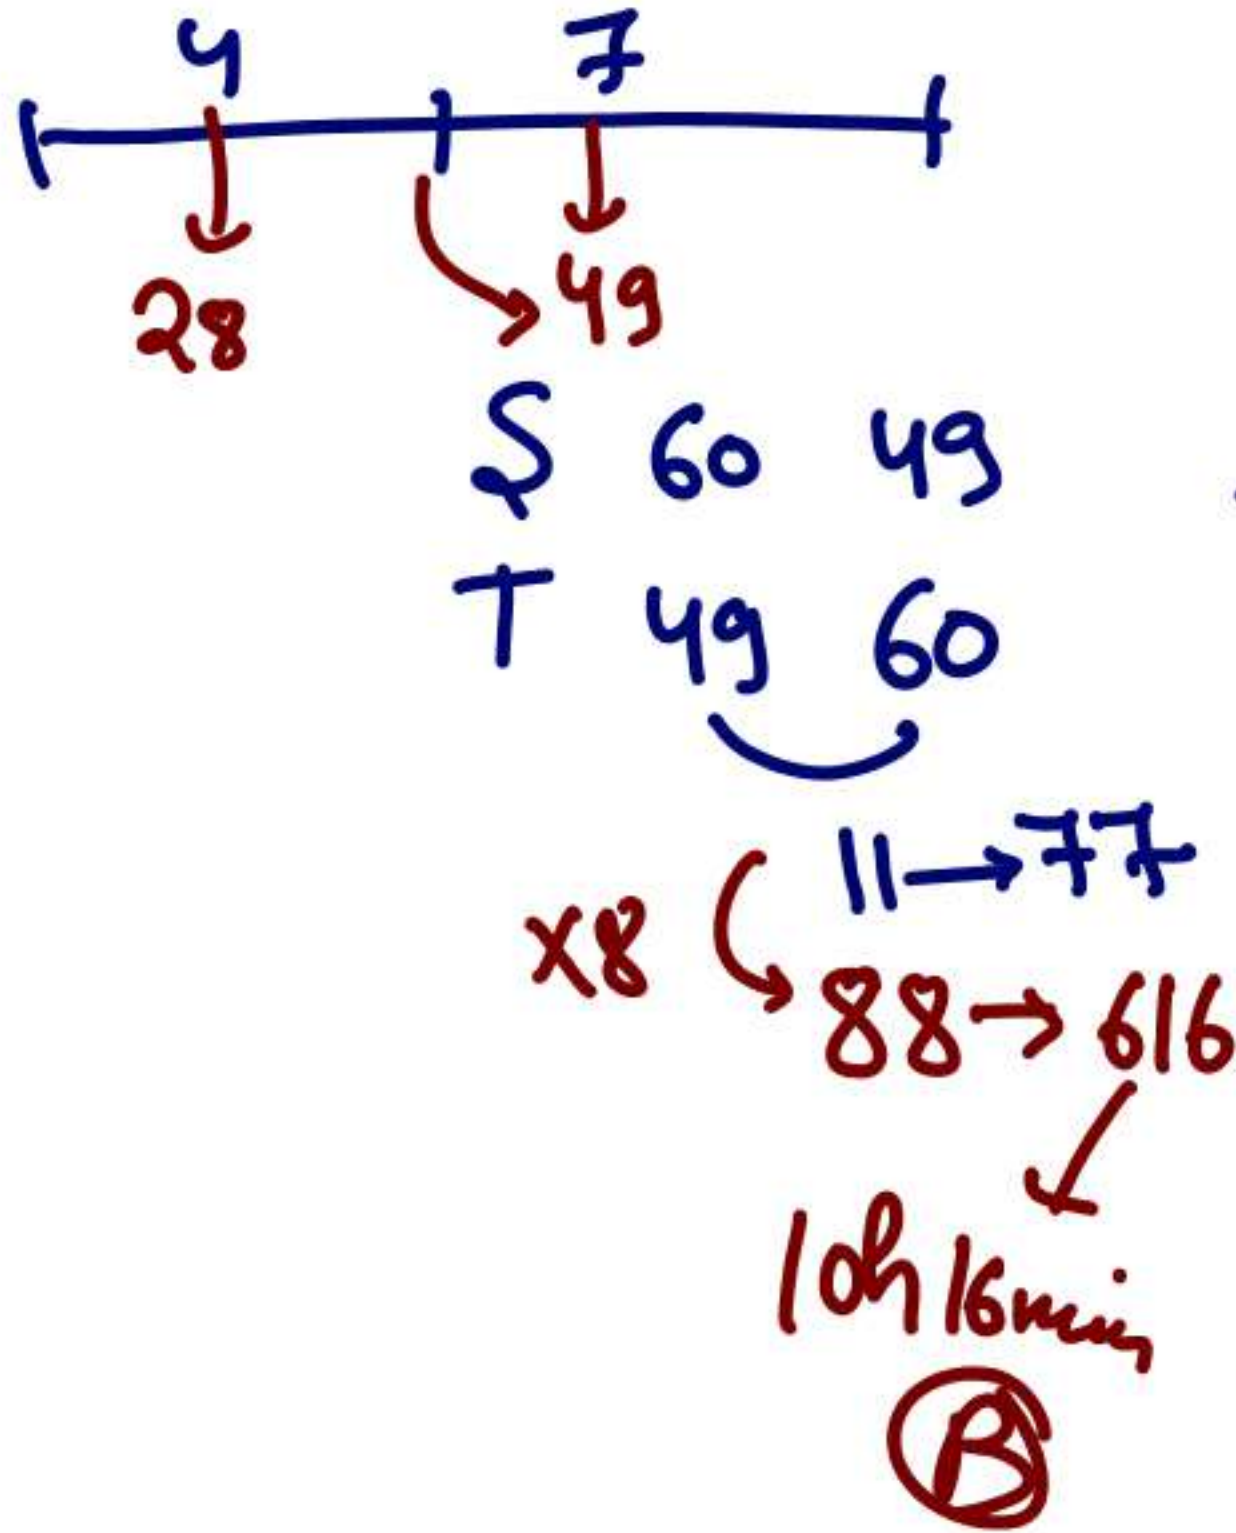 4 7
28 49
S 60 49
T 49 60
11 → 77
×8 88 → 616
10h 16min
B